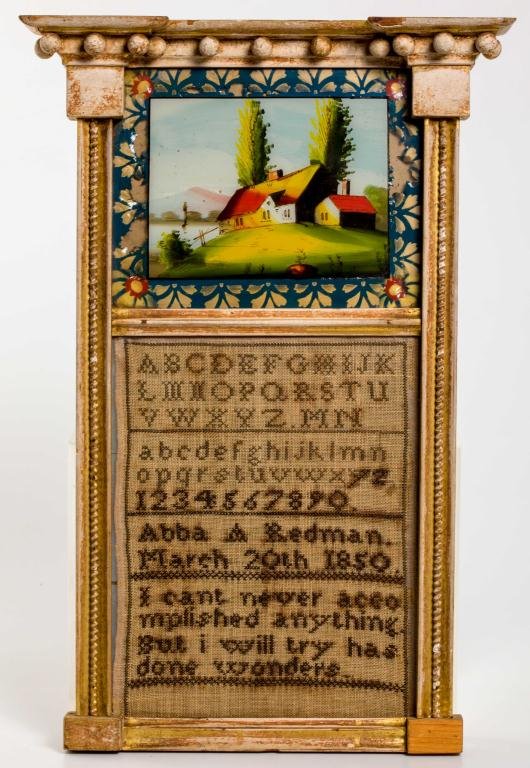 ABCDEFGHIJK
LMNOPQRSTU
VWXYZ.MN
abcdefghijklmn
opqrstuvwxyz.
1234567890.
Abba A Redman.
March 20th 1850.
I cant never acco
mplished anything.
But i will try has
done wonders.